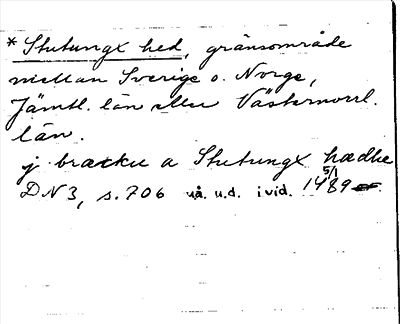 * Stutungx hed, gränsområde
mellan Sverige o. Norge,
Jämtl. län eller Västernorrl.
län.
j brække a Stutungx hædhe
5/1
DN3, s. 706 uå. u.d. i vid. 1489